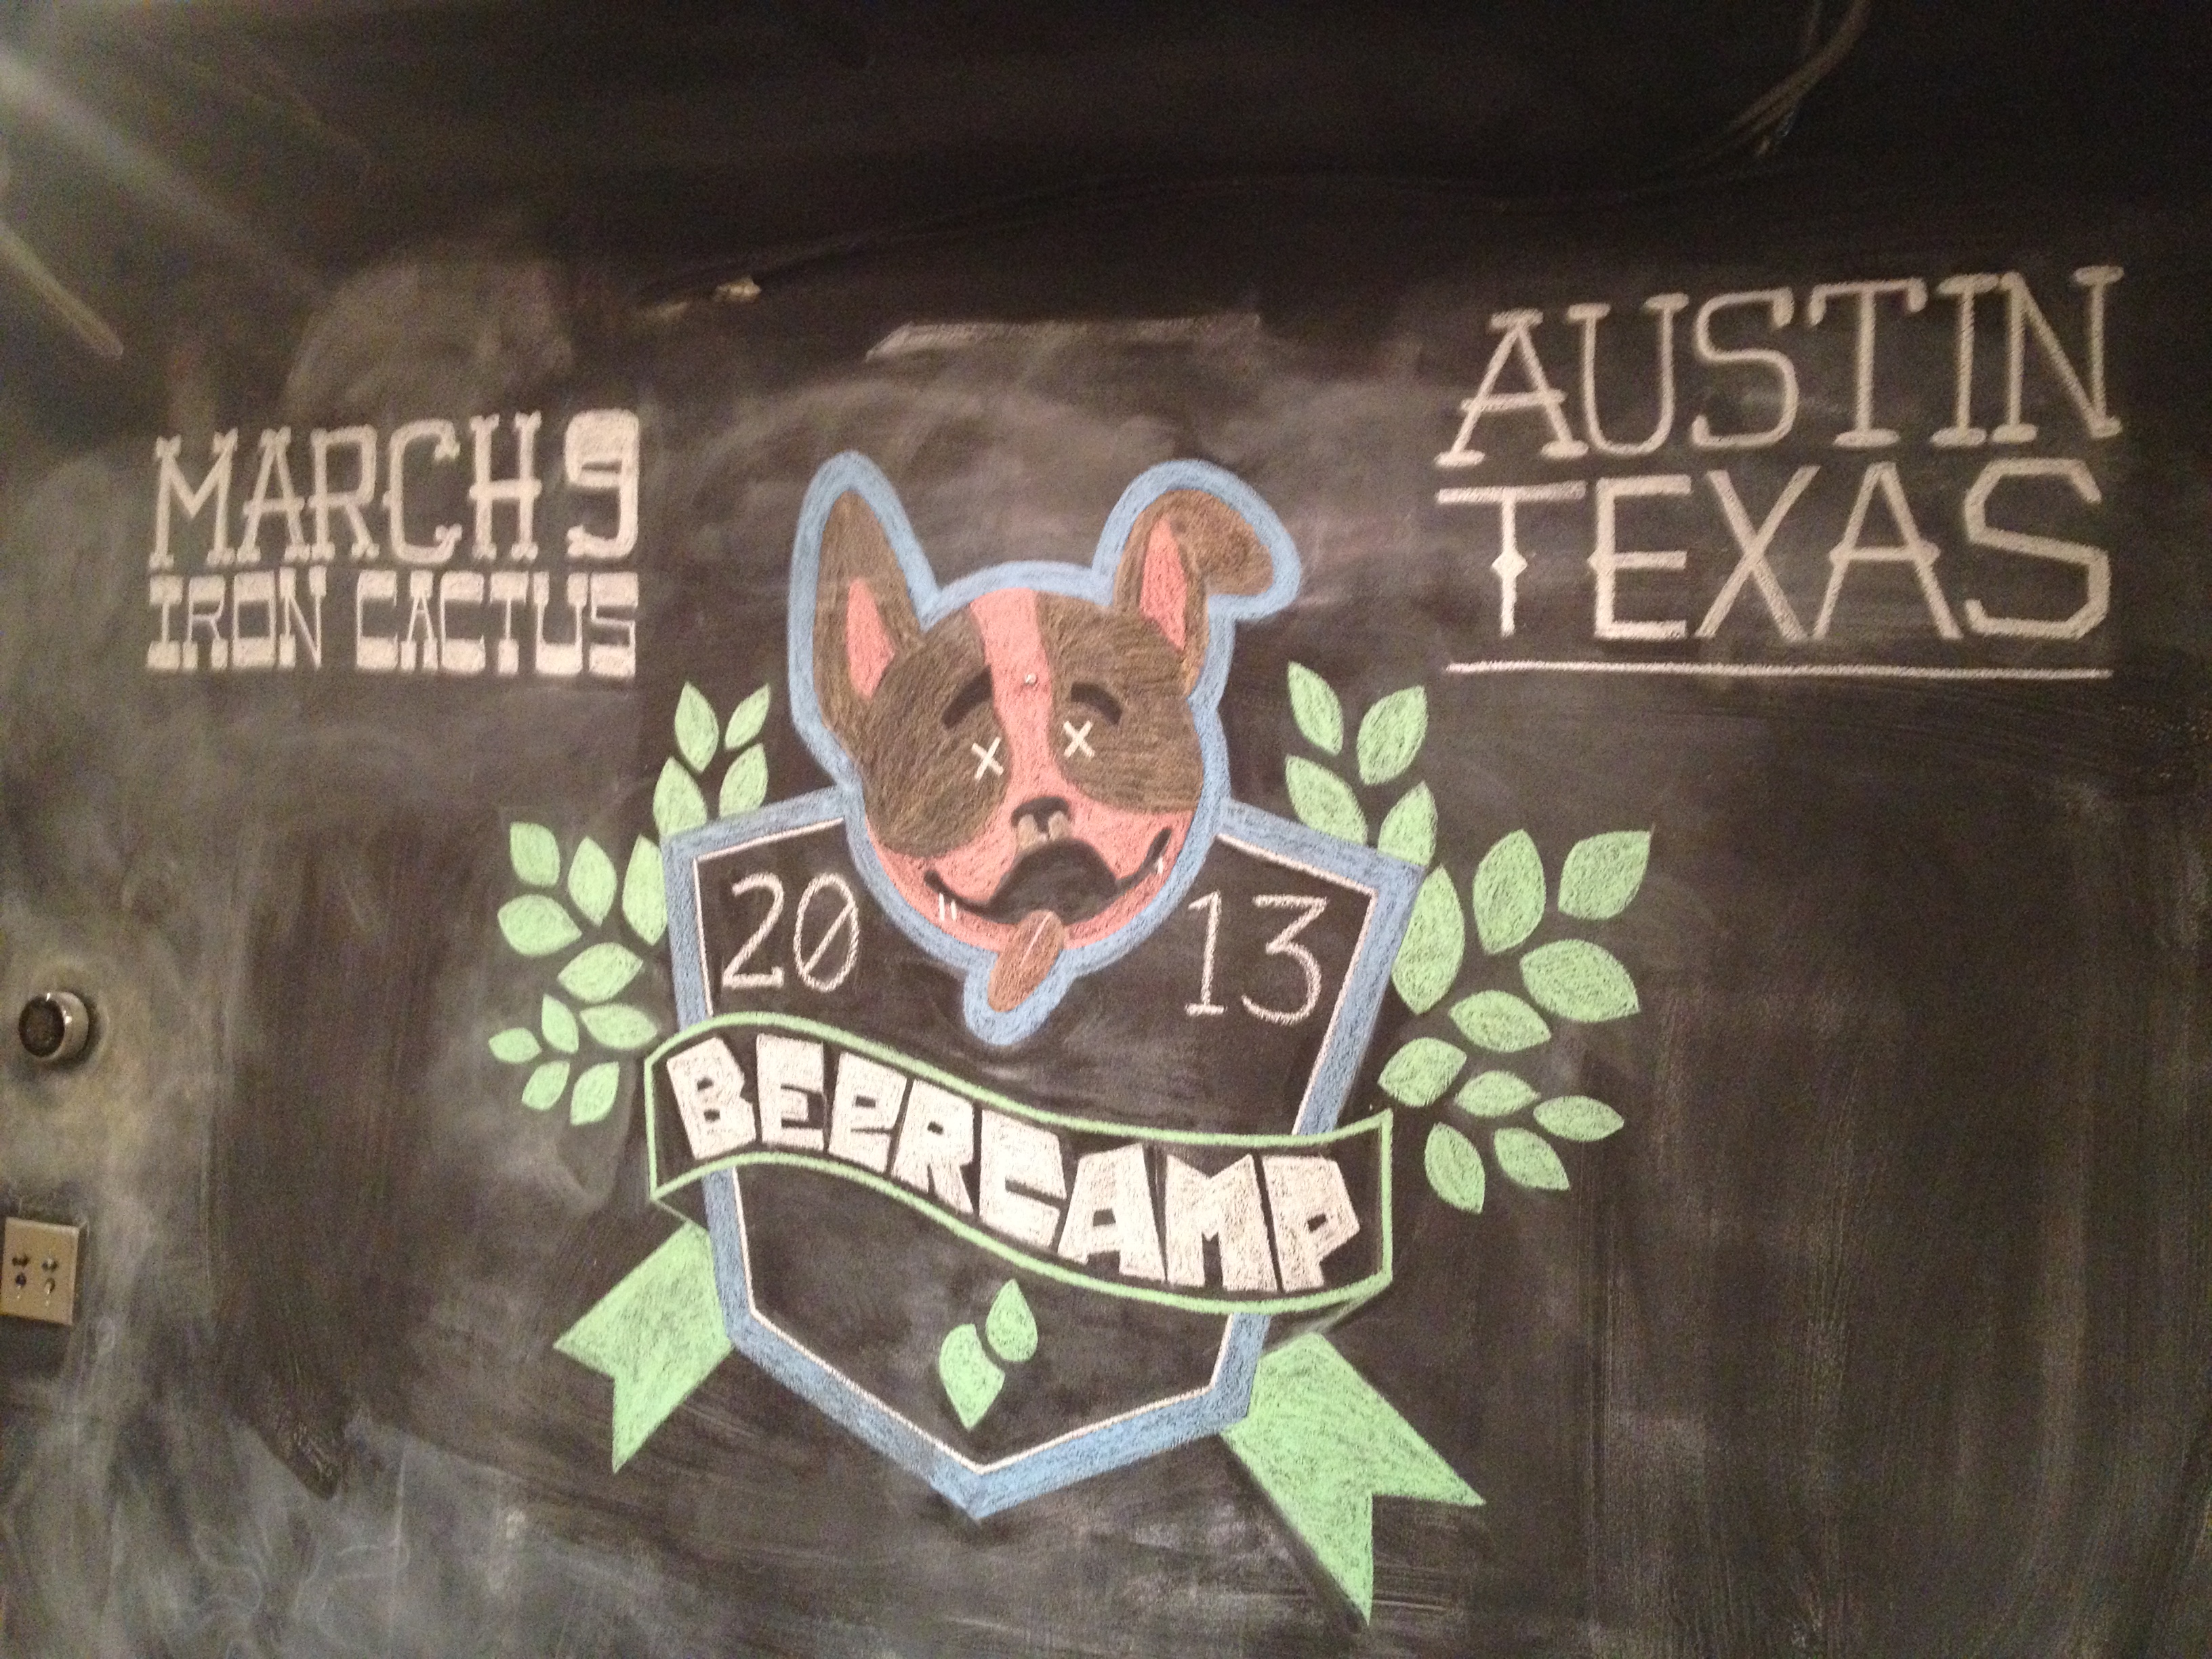 MARCH 9
IRON CACTUS
AUSTIN
TEXAS
20 13
BEERCAMP